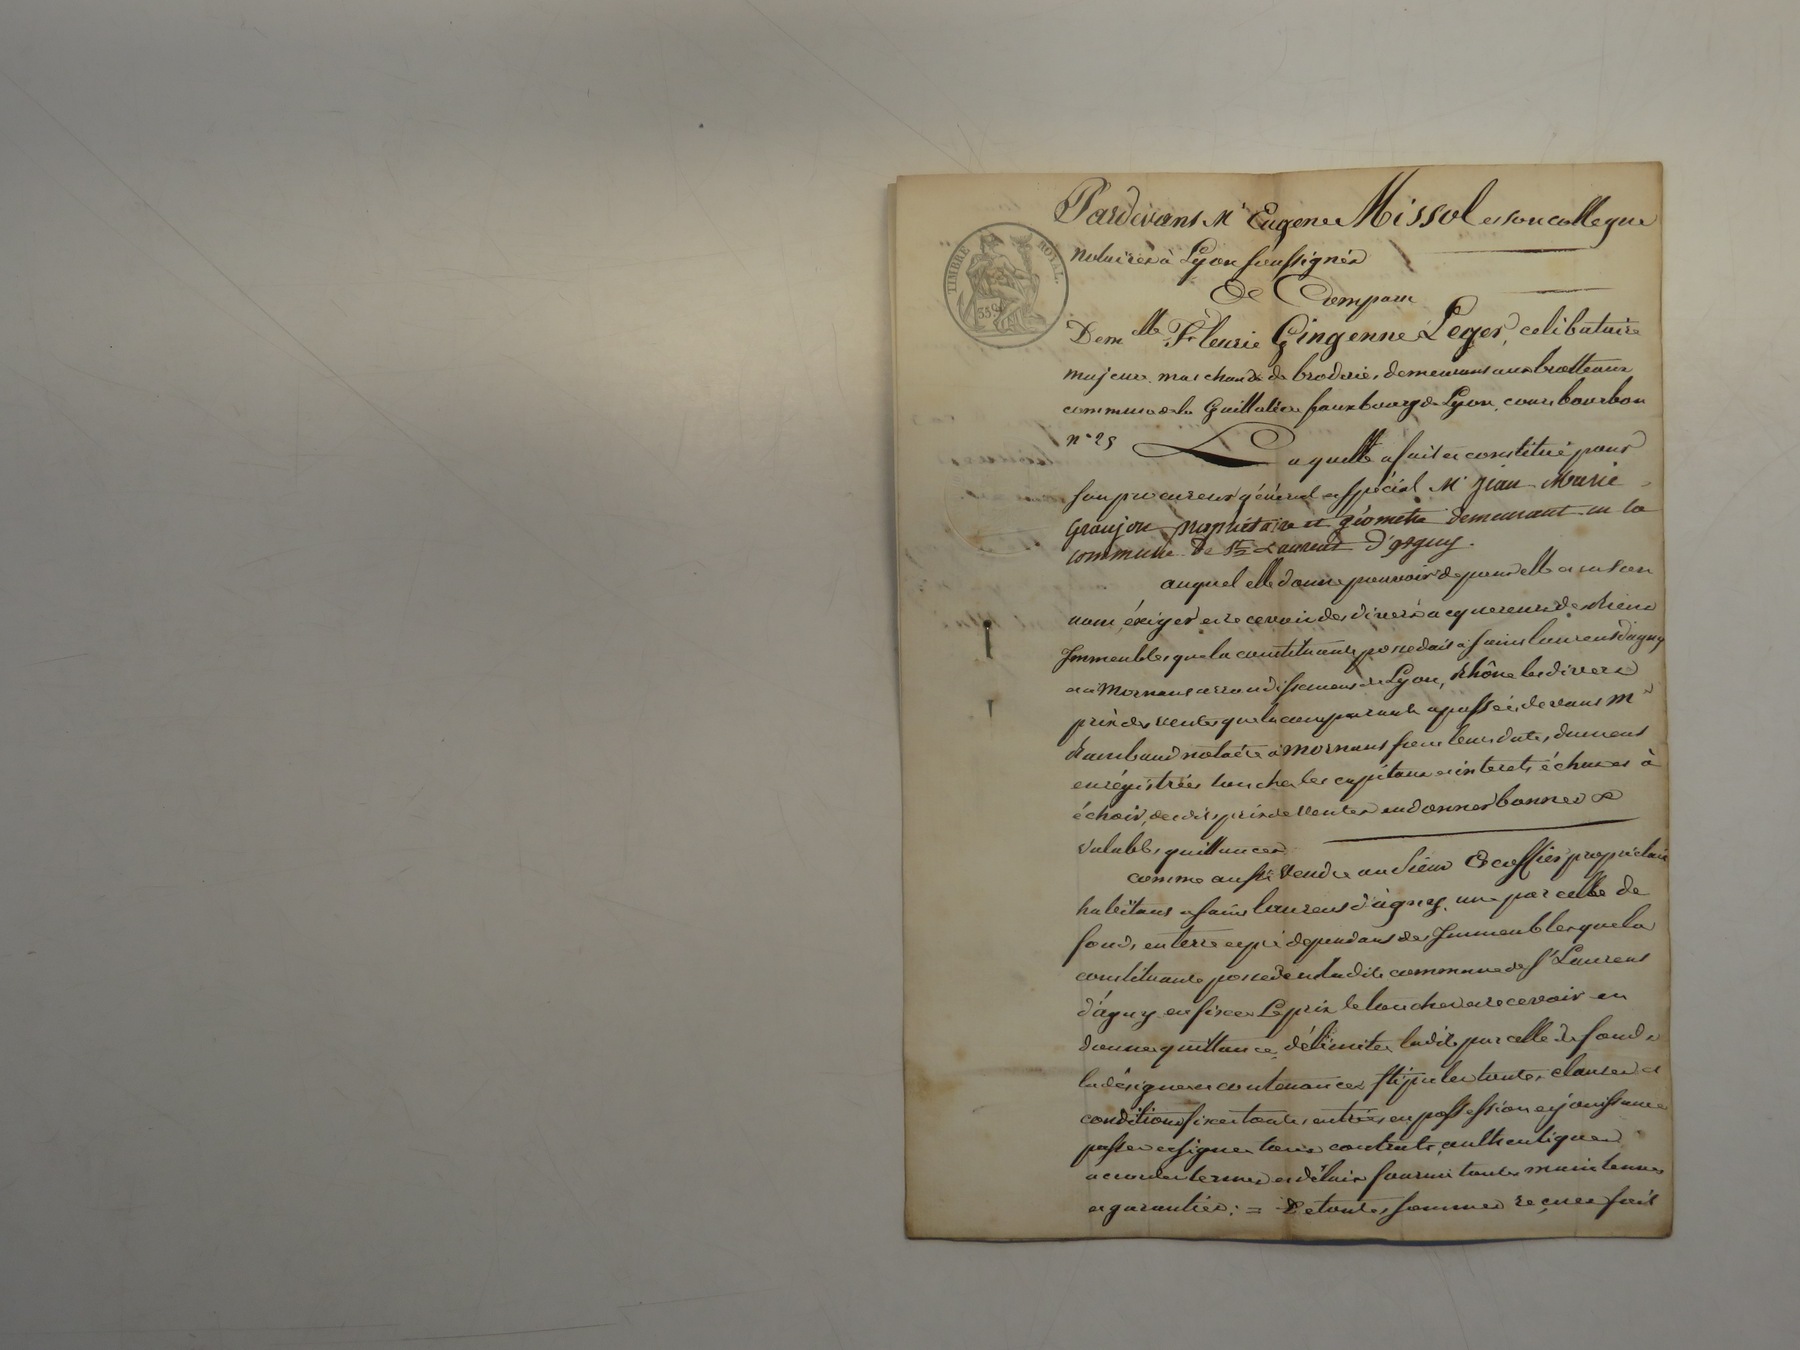 Pardevant Me Eugene Missol et son collegue
notaires à Lyon soussignés
A Comparu
TIMBRE ROYAL.
35c
Demelle Fleurie Gingenne Leger, celibataire
majeure marchande de broderies demeurant aux brotteaux
commune de la Guillotière fauxbourg de Lyon, cours bourbon
n° 25 Laquelle a fait et constitué pour
son procureur général et spécial Mr Jean Marie
Graujon propriétaire et géometre demeurant en la
commune de St Laurent d'agny.
auquel elle donne pouvoir de pour elle et en son
nom, éxiger et recevoir des divers acquereurs des biens
Immeubles que la constituante possedait a saint laurent d'agny
et à Mornant arrondissement de Lyon, Rhône les divers
prix des ventes que la comparante a passées devant Me
Rambaud notaire à Mornant sous leurs dates, dument
enrégistrées toucher les capitaux et interets échus et à
échoir, desdits prix de ventes en donner bonnes et
valables quittances
comme aussi vendre au sieur Escoffier propriétaire
habitant a saint laurent d'agny, une parcelle de
fonds en terre et pré dependant des Immeubles que la
constituante possede en ladite commune de St Laurent
d'agny en fixer Le prix le toucher et recevoir en
donner quittance, délimiter ladite parcelle de fonds
la désigner et contenances stipuler toutes clauses et
conditions fixer toutes entrées en possession et jouissance
passer et signer tous contrats authentiques
accorder termes et délais fournir toutes main levées
et garanties: = De toutes sommes reçues fait